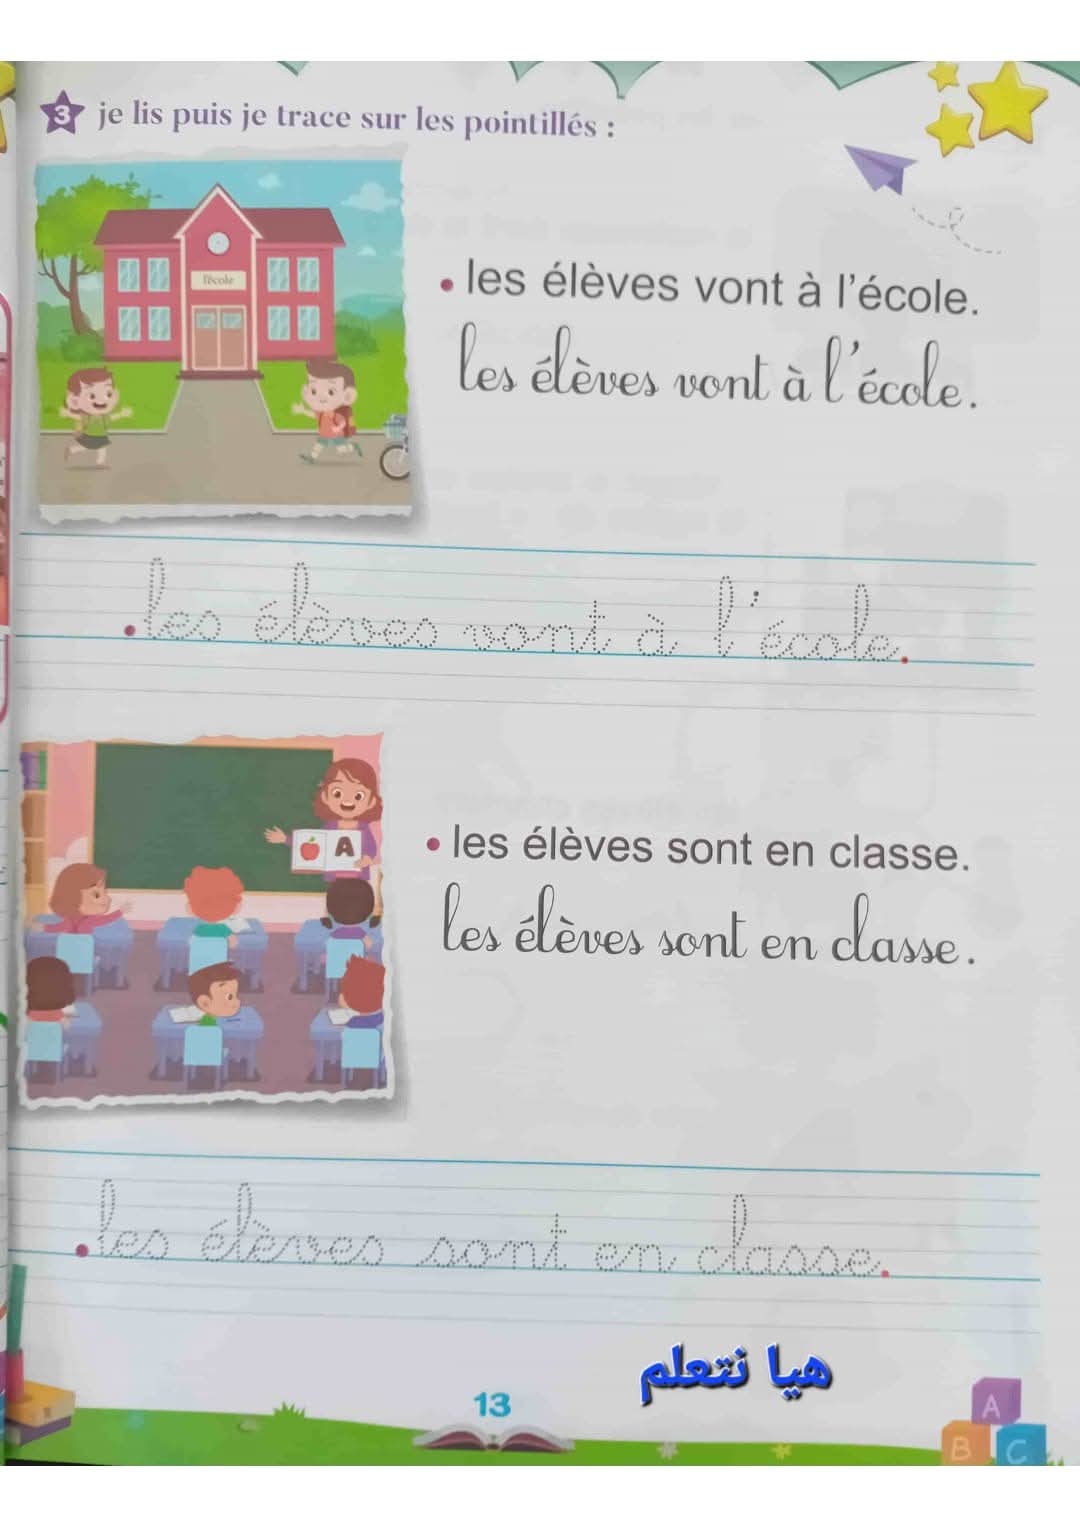 3 je lis puis je trace sur les pointillés :
l'école
• les élèves vont à l'école.
les élèves vont à l'école.
• les élèves vont à l'école.
A
• les élèves sont en classe.
les élèves sont en classe.
• les élèves sont en classe.
هيا نتعلم
13
A
B C